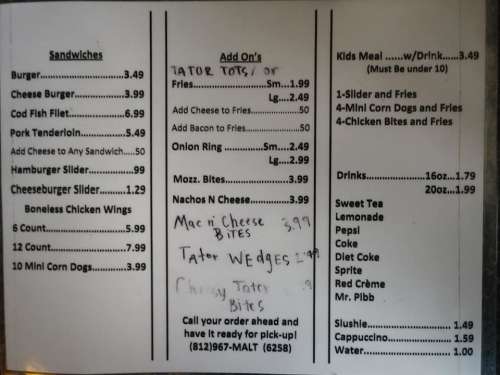 Sandwiches
Burger..........................3.49
Cheese Burger.............3.99
Cod Fish Filet..............6.99
Pork Tenderloin...........5.49
Add Cheese to Any Sandwich.....50
Hamburger Slider..........99
Cheeseburger Slider.....1.29
Boneless Chicken Wings
6 Count........................5.99
12 Count......................7.99
10 Mini Corn Dogs.......3.99
Add On's
TATOR TOTS/ or
Fries......................Sm...1.99
Lg...2.49
Add Cheese to Fries..................50
Add Bacon to Fries...................50
Onion Ring ..........Sm....2.49
Lg...2.99
Mozz. Bites...................3.99
Nachos N Cheese...........3.99
Mac n' Cheese 3.99
BiTES
Tator WEdgES
Tator
Bites
Call your order ahead and
have it ready for pick-up!
(812)967-MALT (6258)
Kids Meal ......w/Drink.....3.49
(Must Be under 10)
1-Slider and Fries
4-Mini Corn Dogs and Fries
4-Chicken Bites and Fries
Drinks....................16oz...1.79
20oz...1.99
Sweet Tea
Lemonade
Pepsi
Coke
Diet Coke
Sprite
Red Crème
Mr. Pibb
Slushie............................ 1.49
Cappuccino...................... 1.59
Water.............................. 1.00